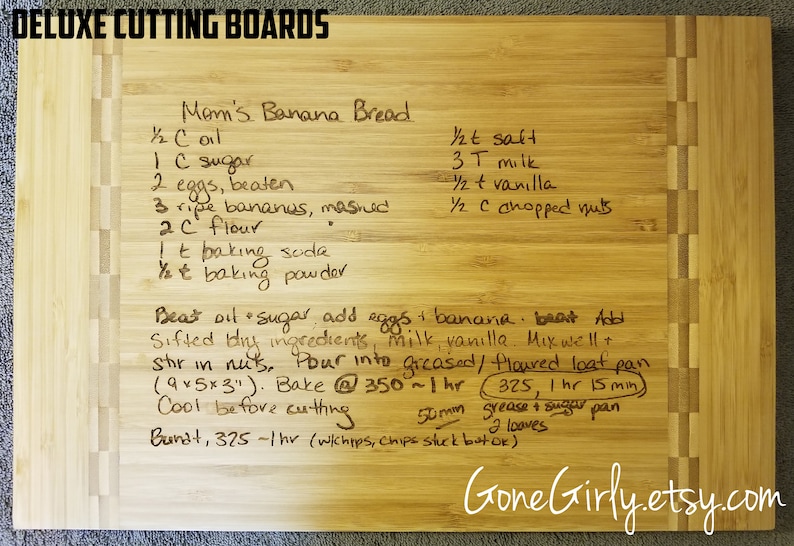 DELUXE CUTTING BOARDS
Mom's Banana Bread
½ C oil
1 C sugar
2 eggs, beaten
3 ripe bananas, mashed
2 C flour
1 t baking soda
½ t baking powder
½ t salt
3 T milk
½ t vanilla
½ C chopped nuts
Beat oil + sugar, add eggs + banana. beat Add
sifted dry ingredients, milk, vanilla. Mix well +
stir in nuts. Pour into greased/floured loaf pan
(9x5x3"). Bake @ 350 ~ 1 hr (325, 1 hr 15 min)
Cool before cutting 50 min grease + sugar pan
2 loaves
Bundt, 325 ~1 hr (w/chips, chips stuck but OK)
GoneGirly.etsy.com